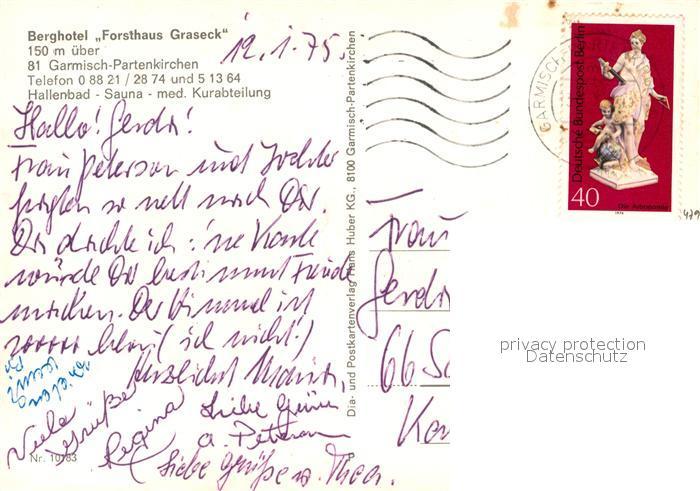 Berghotel „Forsthaus Graseck“
150 m über
81 Garmisch-Partenkirchen
Telefon 0 88 21 / 28 74 und 5 13 64
Hallenbad - Sauna - med. Kurabteilung
12.1.75.
Hallo! Gerda!
Frau Peterson und Tochter
fragten so nett nach Dir.
Da dachte ich: 'ne Karte
würde Dir bestimmt Freude
machen. Der Himmel ist
blau (ich nicht!)
Herzlichst
Viele Grüße
Regina
Liebe Grüße
a. Peterson
Liebe Grüße v. Thea.
Nr. 10183
Dia- und Postkartenverlag Hans Huber KG., 8100 Garmisch-Partenkirchen
GARMISCH-
Deutsche Bundespost Berlin
40
Die Astronomie
1974
479
Frau
Gerda
66
privacy protection
Datenschutz